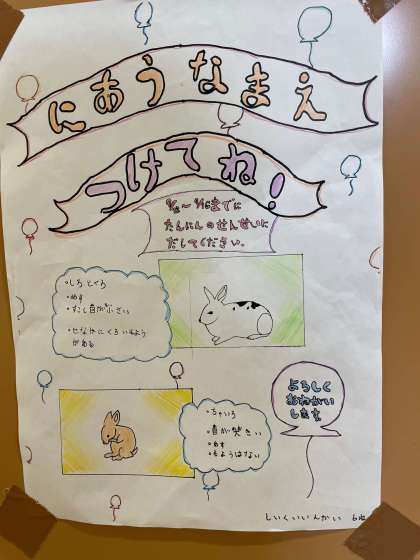 にあうなまえ
つけてね!
までに
たんにんのせんせいに
だしてください。
・しろとくろ
・めす
・すこし目が小さい
・せなかにくろいもよう
がある
・ちゃいろ
・目が大きい
・めす
・もようはない
よろしく
おねがい
します
しいくいいんかい